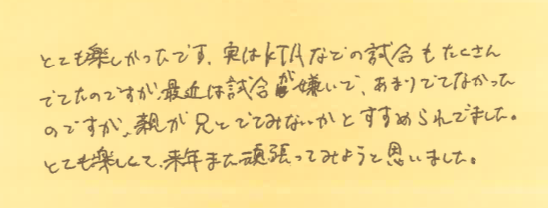 とても楽しかったです。実はKTAなどの試合もたくさん
でてたのですが、最近は試合が嫌いで、あまりでてなかった
のですが、親が兄とでてみないかとすすめられでました。
とても楽しくて、来年また頑張ってみようと思いました。